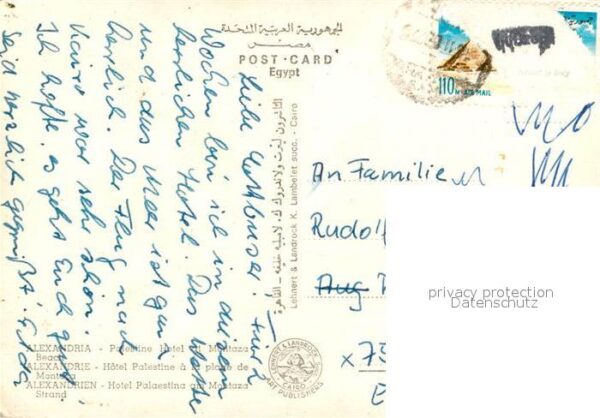 الجمهورية العربية المتحدة
مصر
POST-CARD
Egypt
110 M AIR MAIL
Liebe! Fur 2
Wochen bin ich in diesem
herrlichen Hotel. Das Wetter
und das Meer ist ganz
herrlich. Der Flug nach
Kairo war sehr schön.
Ich hoffe, es geht Euch gut.
Seid herzlich gegrüßt!
Lehnert & Landrock K. Lambelet succ. - Cairo
An Familie
Rudolf
Aug
privacy protection
Datenschutz
x75
E
ALEXANDRIA - Palestine Hotel at Montaza
Beach
ALEXANDRIE - Hôtel Palestine à la plage de
Montaza
ALEXANDRIEN - Hotel Palaestina am Montaza
Strand
LEHNERT & LANDROCK
CAIRO
ART PUBLISHERS